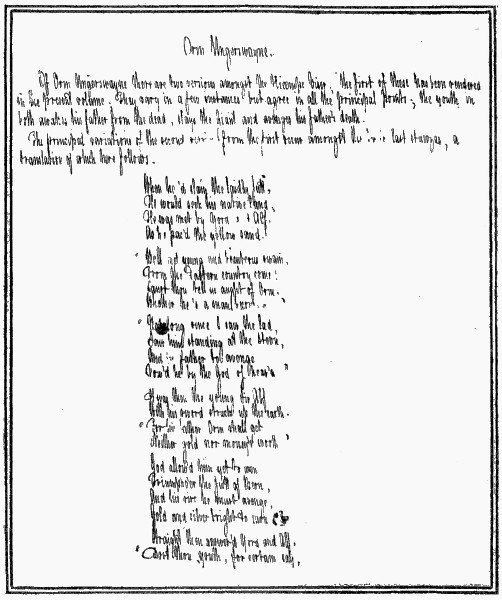 Orm Ungerswayne.
Of Orm Ungerswayne there are two versions amongst the Kiempe Viser; the first of these has been rendered
in the present volume. They vary in a few instances but agree in all the principal points; the youth in
both awakes his father from the dead, slays the Giant and avenges his father's death.
The principal variations of the second from the first occur amongst the last stanzas, a
translation of which here follows.
When he'd slain the loidly
He would seek his native land,
He was met by Gord and Alf,
As he pac'd the yellow sand.
" Well met young and beauteous swain,
From the Eastern country come!
Canst thou tell us aught of Orm,
Whether he's a man "
" Not long since I saw the lad,
Saw him standing at the stern,
And his father to avenge
Vow'd he by the God of "
Away then the young Sir Alf
With his sword struck up the earth.
" For his father Orm shall get
Neither gold nor money's worth "
God allow'd him yet to win
Triumph o'er the full of
And his sire he must avenge,
Gold and silver bright to
Straight then answer'd Gord and Alf.
" Canst thou youth, for certain say,